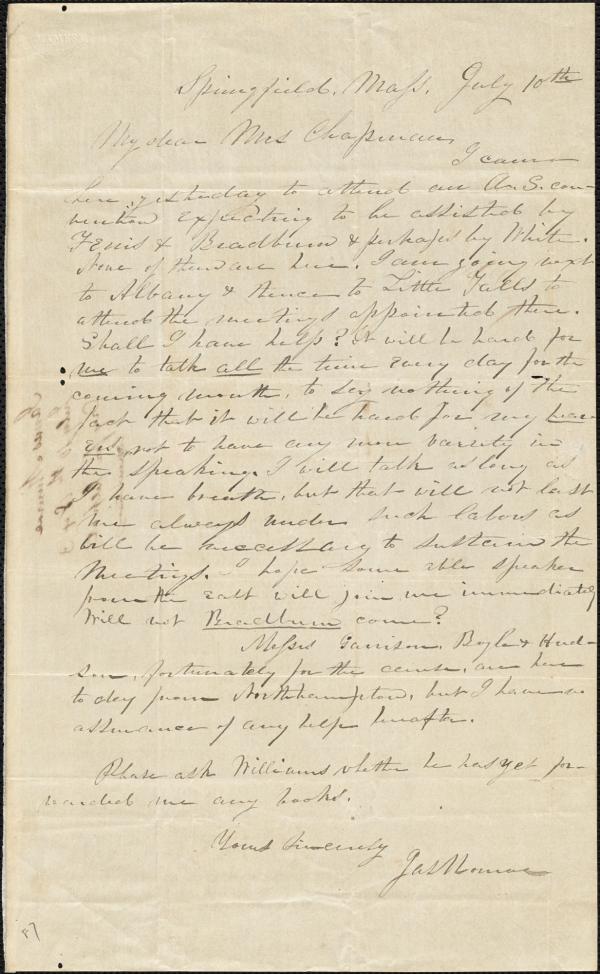 Springfield, Mass. July 10th
My dear Mrs Chapman,
I came
here yesterday to attend an A.S. con-
vention expecting to be assisted by
Ferris & Bradburn & perhaps by White.
None of them are here. I am going next
to Albany & thence to Little Falls to
attend the meetings appointed there.
Shall I have help? It will be hard for
me to talk all the time every day for the
coming month, to say nothing of the
fact that it will be hard for my hear-
ers, not to have any more variety in
the speaking. I will talk as long as
I have breath, but that will not last
me always under such labors as
will be necessary to sustain the
Meetings. I hope some able speaker
from the East will join me immediately
Will not Bradburn come?
Messrs Garrison, Boyle & Hud-
son, fortunately for the cause, are here
to day from Northampton, but I have no
assurance of any help hereafter.
Please ask Williams whether he has yet for-
warded me any books.
Yours Sincerely
Jas Monroe